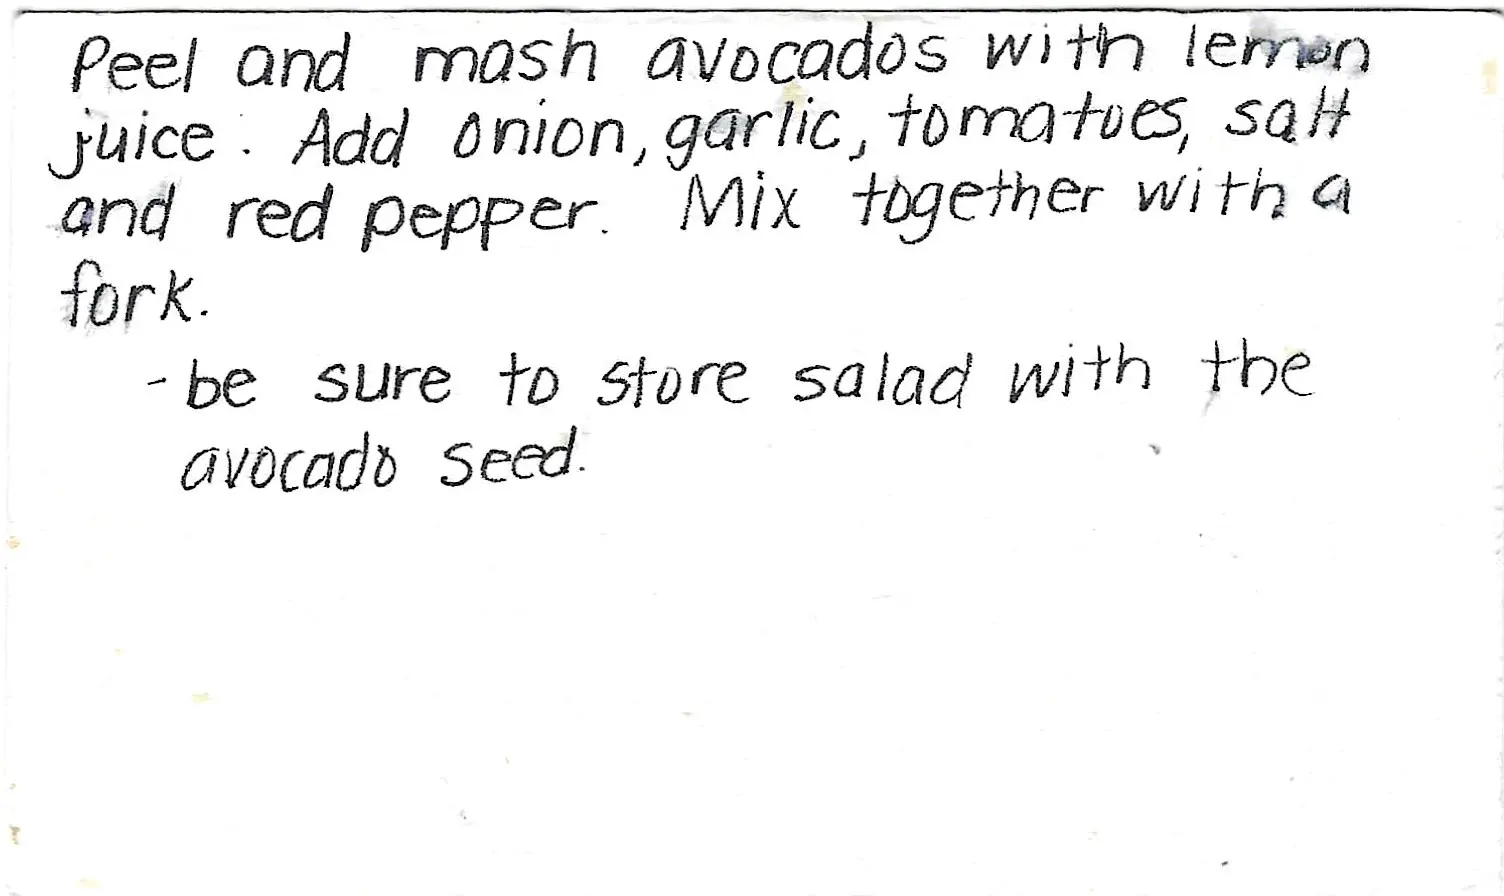 Peel and mash avocados with lemon
juice. Add onion, garlic, tomatoes, salt
and red pepper. Mix together with a
fork.
- be sure to store salad with the
avocado seed.